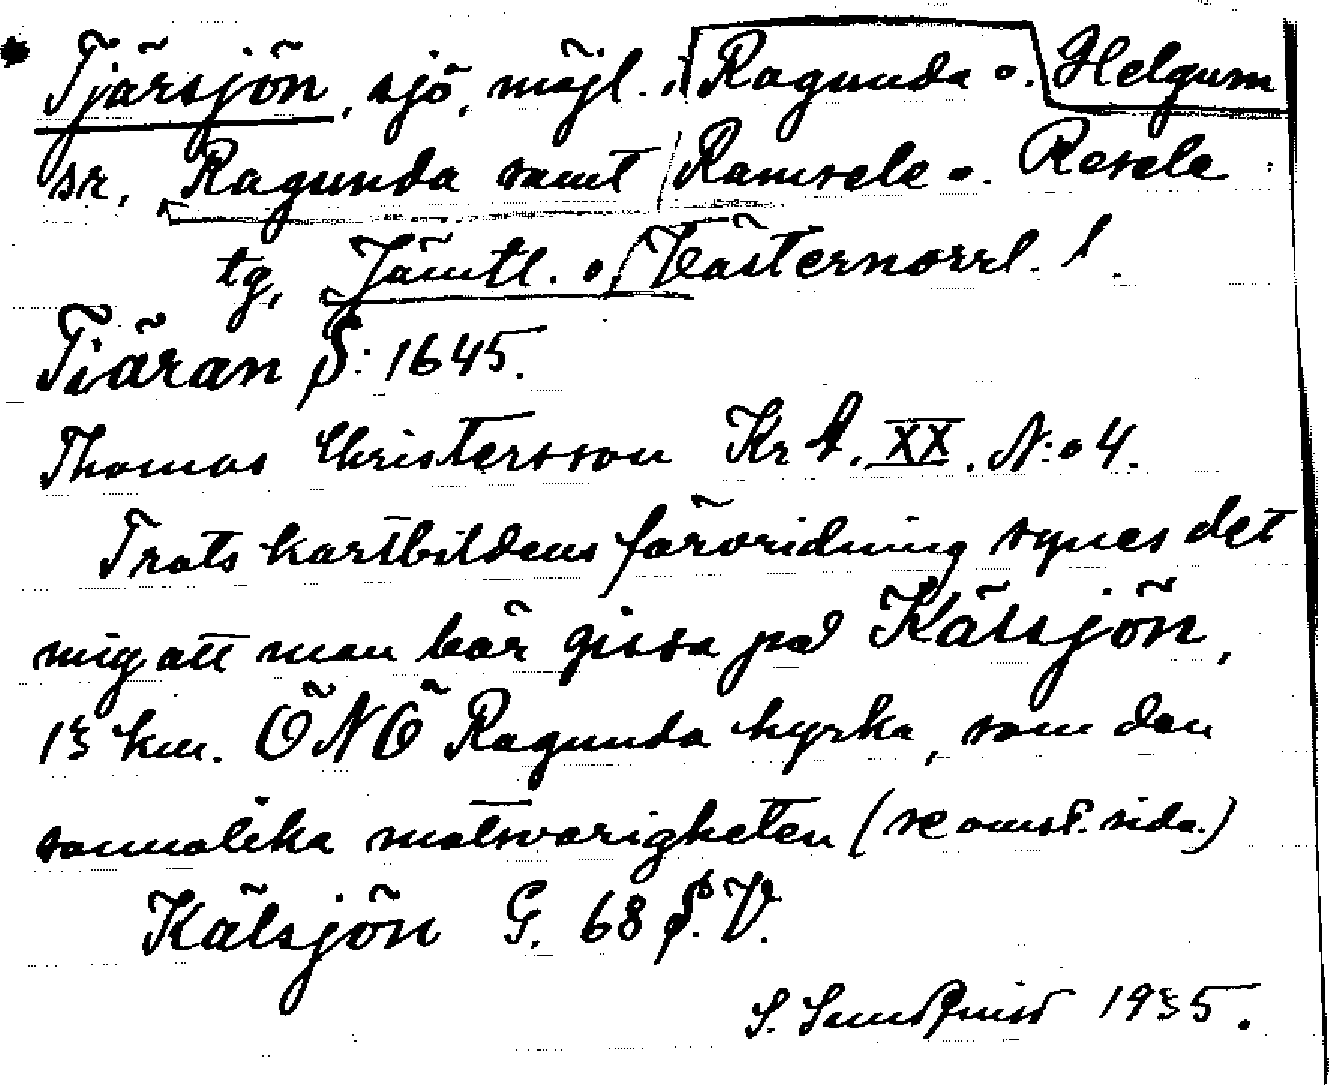 * Tjärsjön, sjö, möjl. i Ragunda o. Helgum
sr, Ragunda samt Ramsele o. Resele
tg, Jämtl. o. Västernorrl. l.
Tiäran S: 1645.
Thomas Christersson Kr A. XX. N:o 4.
Trots kartbildens förvridning synes det
mig att man bör gissa på Kälsjön,
13 km. ÖNÖ Ragunda kyrka, som den
sannolika motsvarigheten (se oms. sida.)
Kälsjön G. 68 S. V.
S. Sundquist 1935.